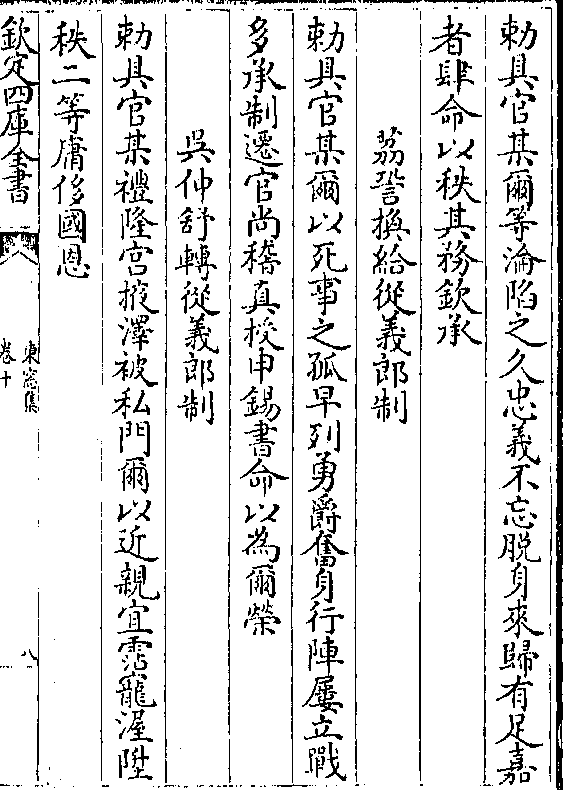 勅具官某爾等淪陷之久忠義不忘脱身來歸有足嘉
者肆命以秩其務欽承
荔謍換給從義郎制
勅具官某爾以死事之孤早列勇爵奮身行陣屢立戰
多承制遷官尚稽真授申錫書命以為爾榮
吳仲舒轉從義郎制
勅具官某禮隆宫掖澤被私門爾以近親宜霑寵渥陞
秩二等庸侈國恩
欽定四庫全書
東窓集
卷十
八